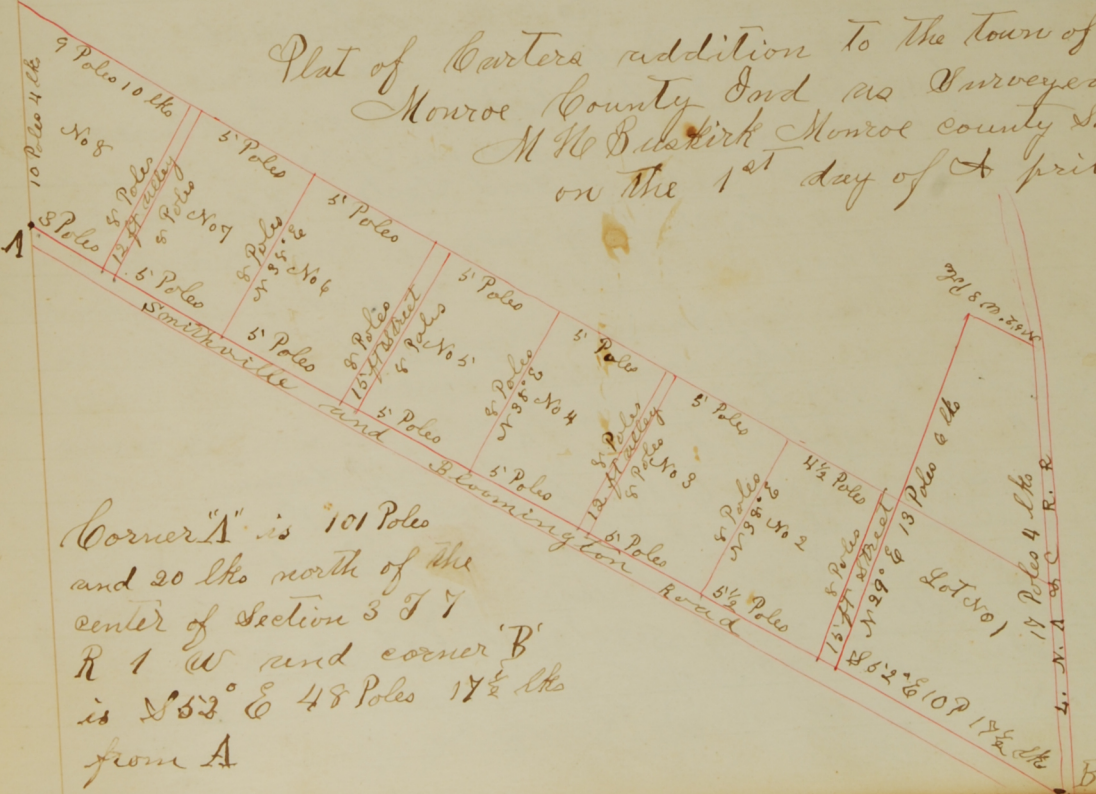 Plat of Carters addition to the town of
Monroe County Ind as Surveyed
M H Buskirk Monroe county
on the 1st day of A pril
9 Poles 10 lks
10 Poles 4 lks
No 8
8 Poles
12 ft Alley
8 Poles
No 7
5 Poles
A
3 Poles
5 Poles
8 Poles
N 38° E
No 6
5 Poles
5 Poles
8 Poles
15 ft Street
8 Poles
No 5
5 Poles
5 Poles
8 Poles
N 38° E
No 4
5 Poles
5 Poles
8 Poles
12 ft Alley
8 Poles
No 3
5 Poles
5 Poles
8 Poles
N 38° E
No 2
4½ Poles
5½ Poles
8 Poles
15 ft Street
N 29° E 13 Poles 6 lks
Lot No 1
N 62° W 3 P
17 Poles 4 lks
L. N. A & C R. R
S 52° E 10 P 17½ lks
B
Smithville and Bloomington Road
Corner "A" is 101 Poles
and 20 lks north of the
center of Section 3 T 7
R 1 W and corner 'B'
is S 52° E 48 Poles 17½ lks
from A